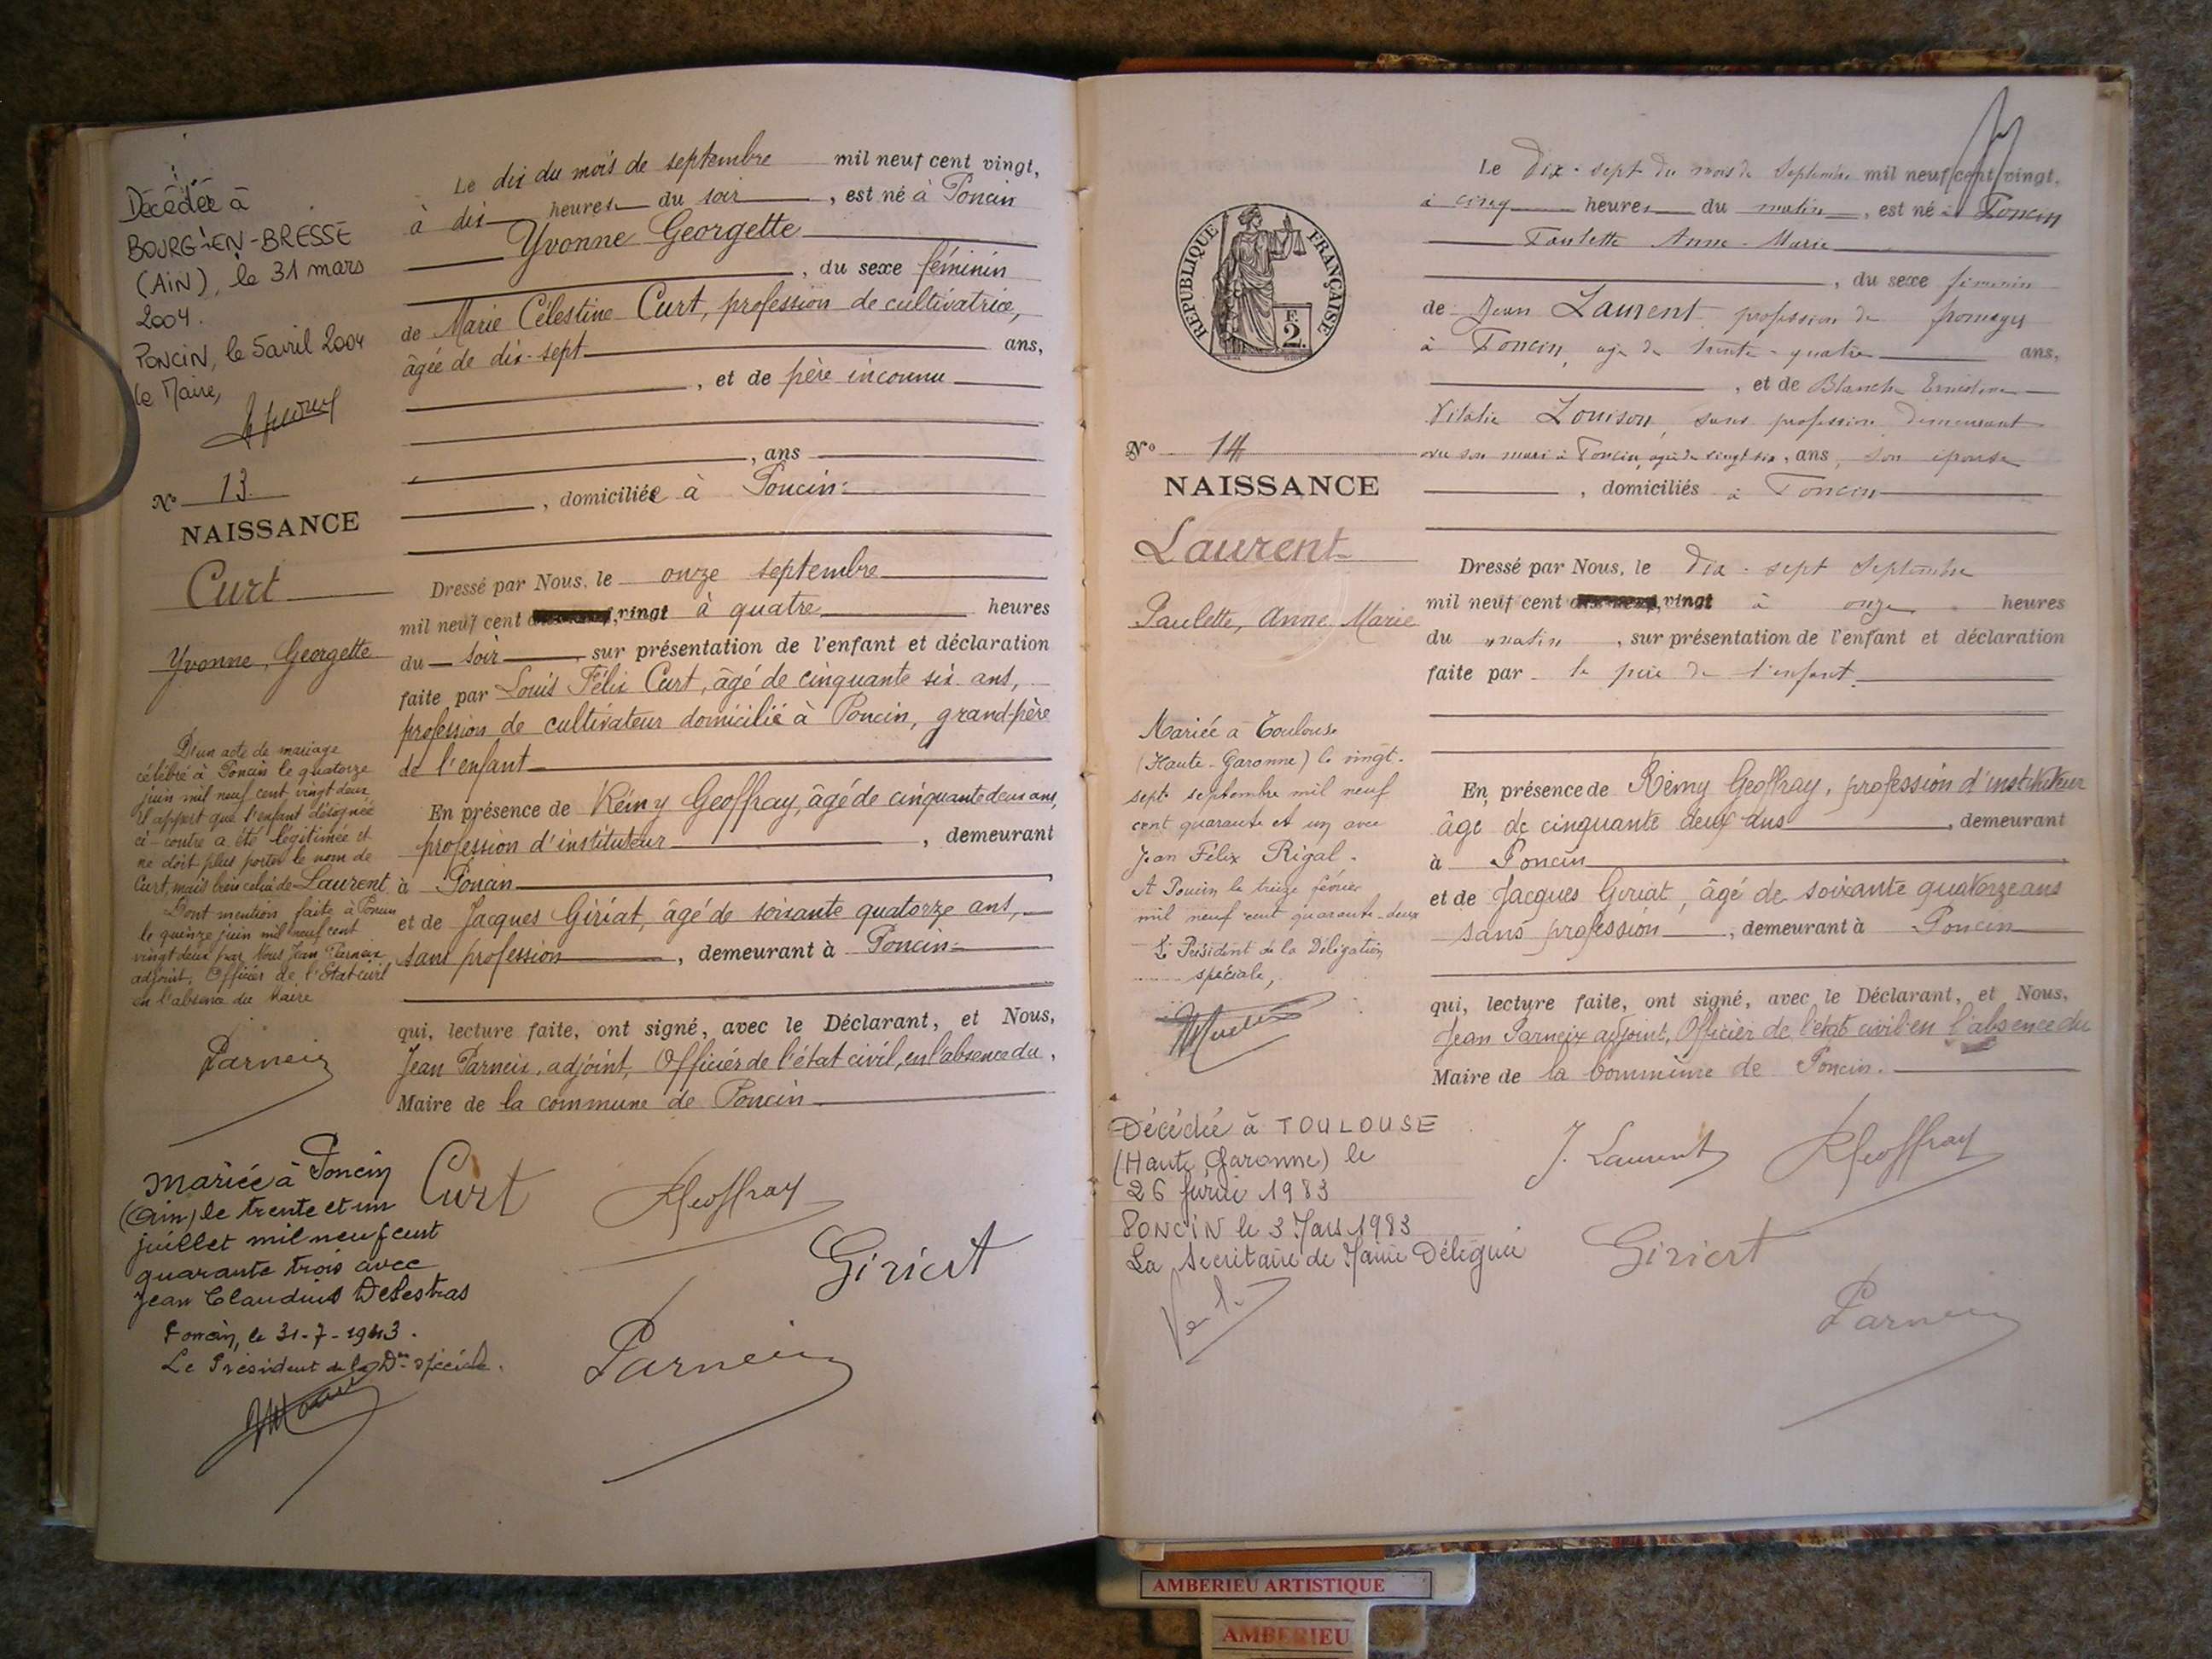 Décédée à
BOURG-EN-BRESSE
(AIN), le 31 mars
2004.
PONCIN, le 5 avril 2004
le Maire,
No 13
NAISSANCE
Curt
Yvonne, Georgette
D'un acte de mariage
célébré à Poncin le quatorze
juin mil neuf cent vingt deux
il appert que l'enfant désignée
ci-contre a été légitimée et
ne doit plus porter le nom de
Curt, mais bien celui de Laurent
Dont mention faite à Poncin
le quinze juin mil neuf cent
vingt deux par Nous Jean Parneix
adjoint, Officier de l'Etat civil
en l'absence du Maire
Parneix
Mariée à Poncin
(Ain) le trente et un
juillet mil neuf cent
quarante trois avec
Jean Claudius Delestras
Poncin, le 31-7-1943.
Le Président de la Don spéciale.
Le dix du mois de septembre mil neuf cent vingt,
à dix heures du soir, est né à Poncin
Yvonne Georgette
, du sexe féminin
de Marie Célestine Curt, profession de cultivatrice,
âgée de dix-sept ans,
, et de père inconnu
, ans
, domiciliée à Poncin
Dressé par Nous, le onze septembre
mil neuf cent vingt à quatre heures
du soir, sur présentation de l'enfant et déclaration
faite par Louis Félix Curt, âgé de cinquante six ans,
profession de cultivateur domicilié à Poncin, grand-père
de l'enfant
En présence de Rémy Geoffray, âgé de cinquante deux ans,
profession d'instituteur, demeurant
à Poncin
et de Jacques Giriat, âgé de soixante quatorze ans,
sans profession, demeurant à Poncin
qui, lecture faite, ont signé, avec le Déclarant, et Nous,
Jean Parneix, adjoint, Officier de l'état civil, en l'absence du
Maire de la commune de Poncin
Curt
RGeoffray
Giriat
Parneix
REPUBLIQUE FRANÇAISE
F.
2.
No 14
NAISSANCE
Laurent
Paulette, Anne Marie
Mariée à Toulouse
(Haute-Garonne) le vingt-
sept septembre mil neuf
cent quarante et un avec
Jean Félix Rigal.
A Poncin le treize février
mil neuf cent quarante-deux
Le Président de la Délégation
spéciale,
Décédée à TOULOUSE
(Haute Garonne) le
26 février 1983
PONCIN le 3 Mars 1983
La Secrétaire de Mairie Déléguée
Le Dix-sept du mois de Septembre mil neuf cent vingt,
à cinq heures du matin, est né à Poncin
Paulette Anne-Marie
, du sexe féminin
de Jean Laurent profession de fromager
à Poncin, agé de trente-quatre ans,
, et de Blanche Ernestine
Vitalie Louison, sans profession demeurant
avec son mari à Poncin, agée de vingt six, ans, son épouse
, domiciliés à Poncin
Dressé par Nous, le Dix-sept Septembre
mil neuf cent vingt à onze heures
du matin, sur présentation de l'enfant et déclaration
faite par le père de l'enfant
En présence de Rémy Geoffray, profession d'instituteur
âgé de cinquante deux ans, demeurant
à Poncin
et de Jacques Giriat, âgé de soixante quatorze ans
sans profession, demeurant à Poncin
qui, lecture faite, ont signé, avec le Déclarant, et Nous,
Jean Parneix adjoint, Officier de l'état civil en l'absence du
Maire de la Commune de Poncin.
J. Laurent
RGeoffray
Giriat
Parneix
AMBERIEU ARTISTIQUE
AMBERIEU